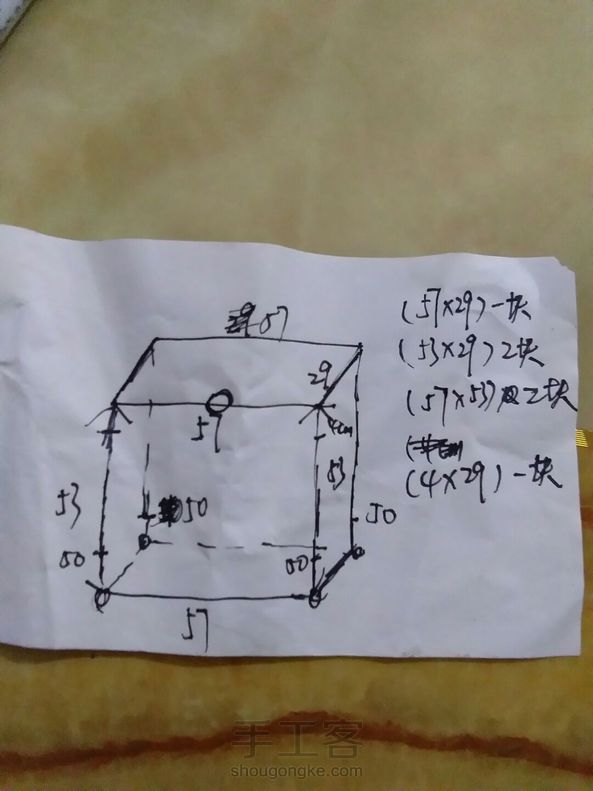 57
29
57
4cm
53
53
50
50
50
50
57
(57×29)一块
(53×29)2块
(57×53)2块
(4×29)一块
手工客
shougongke.com